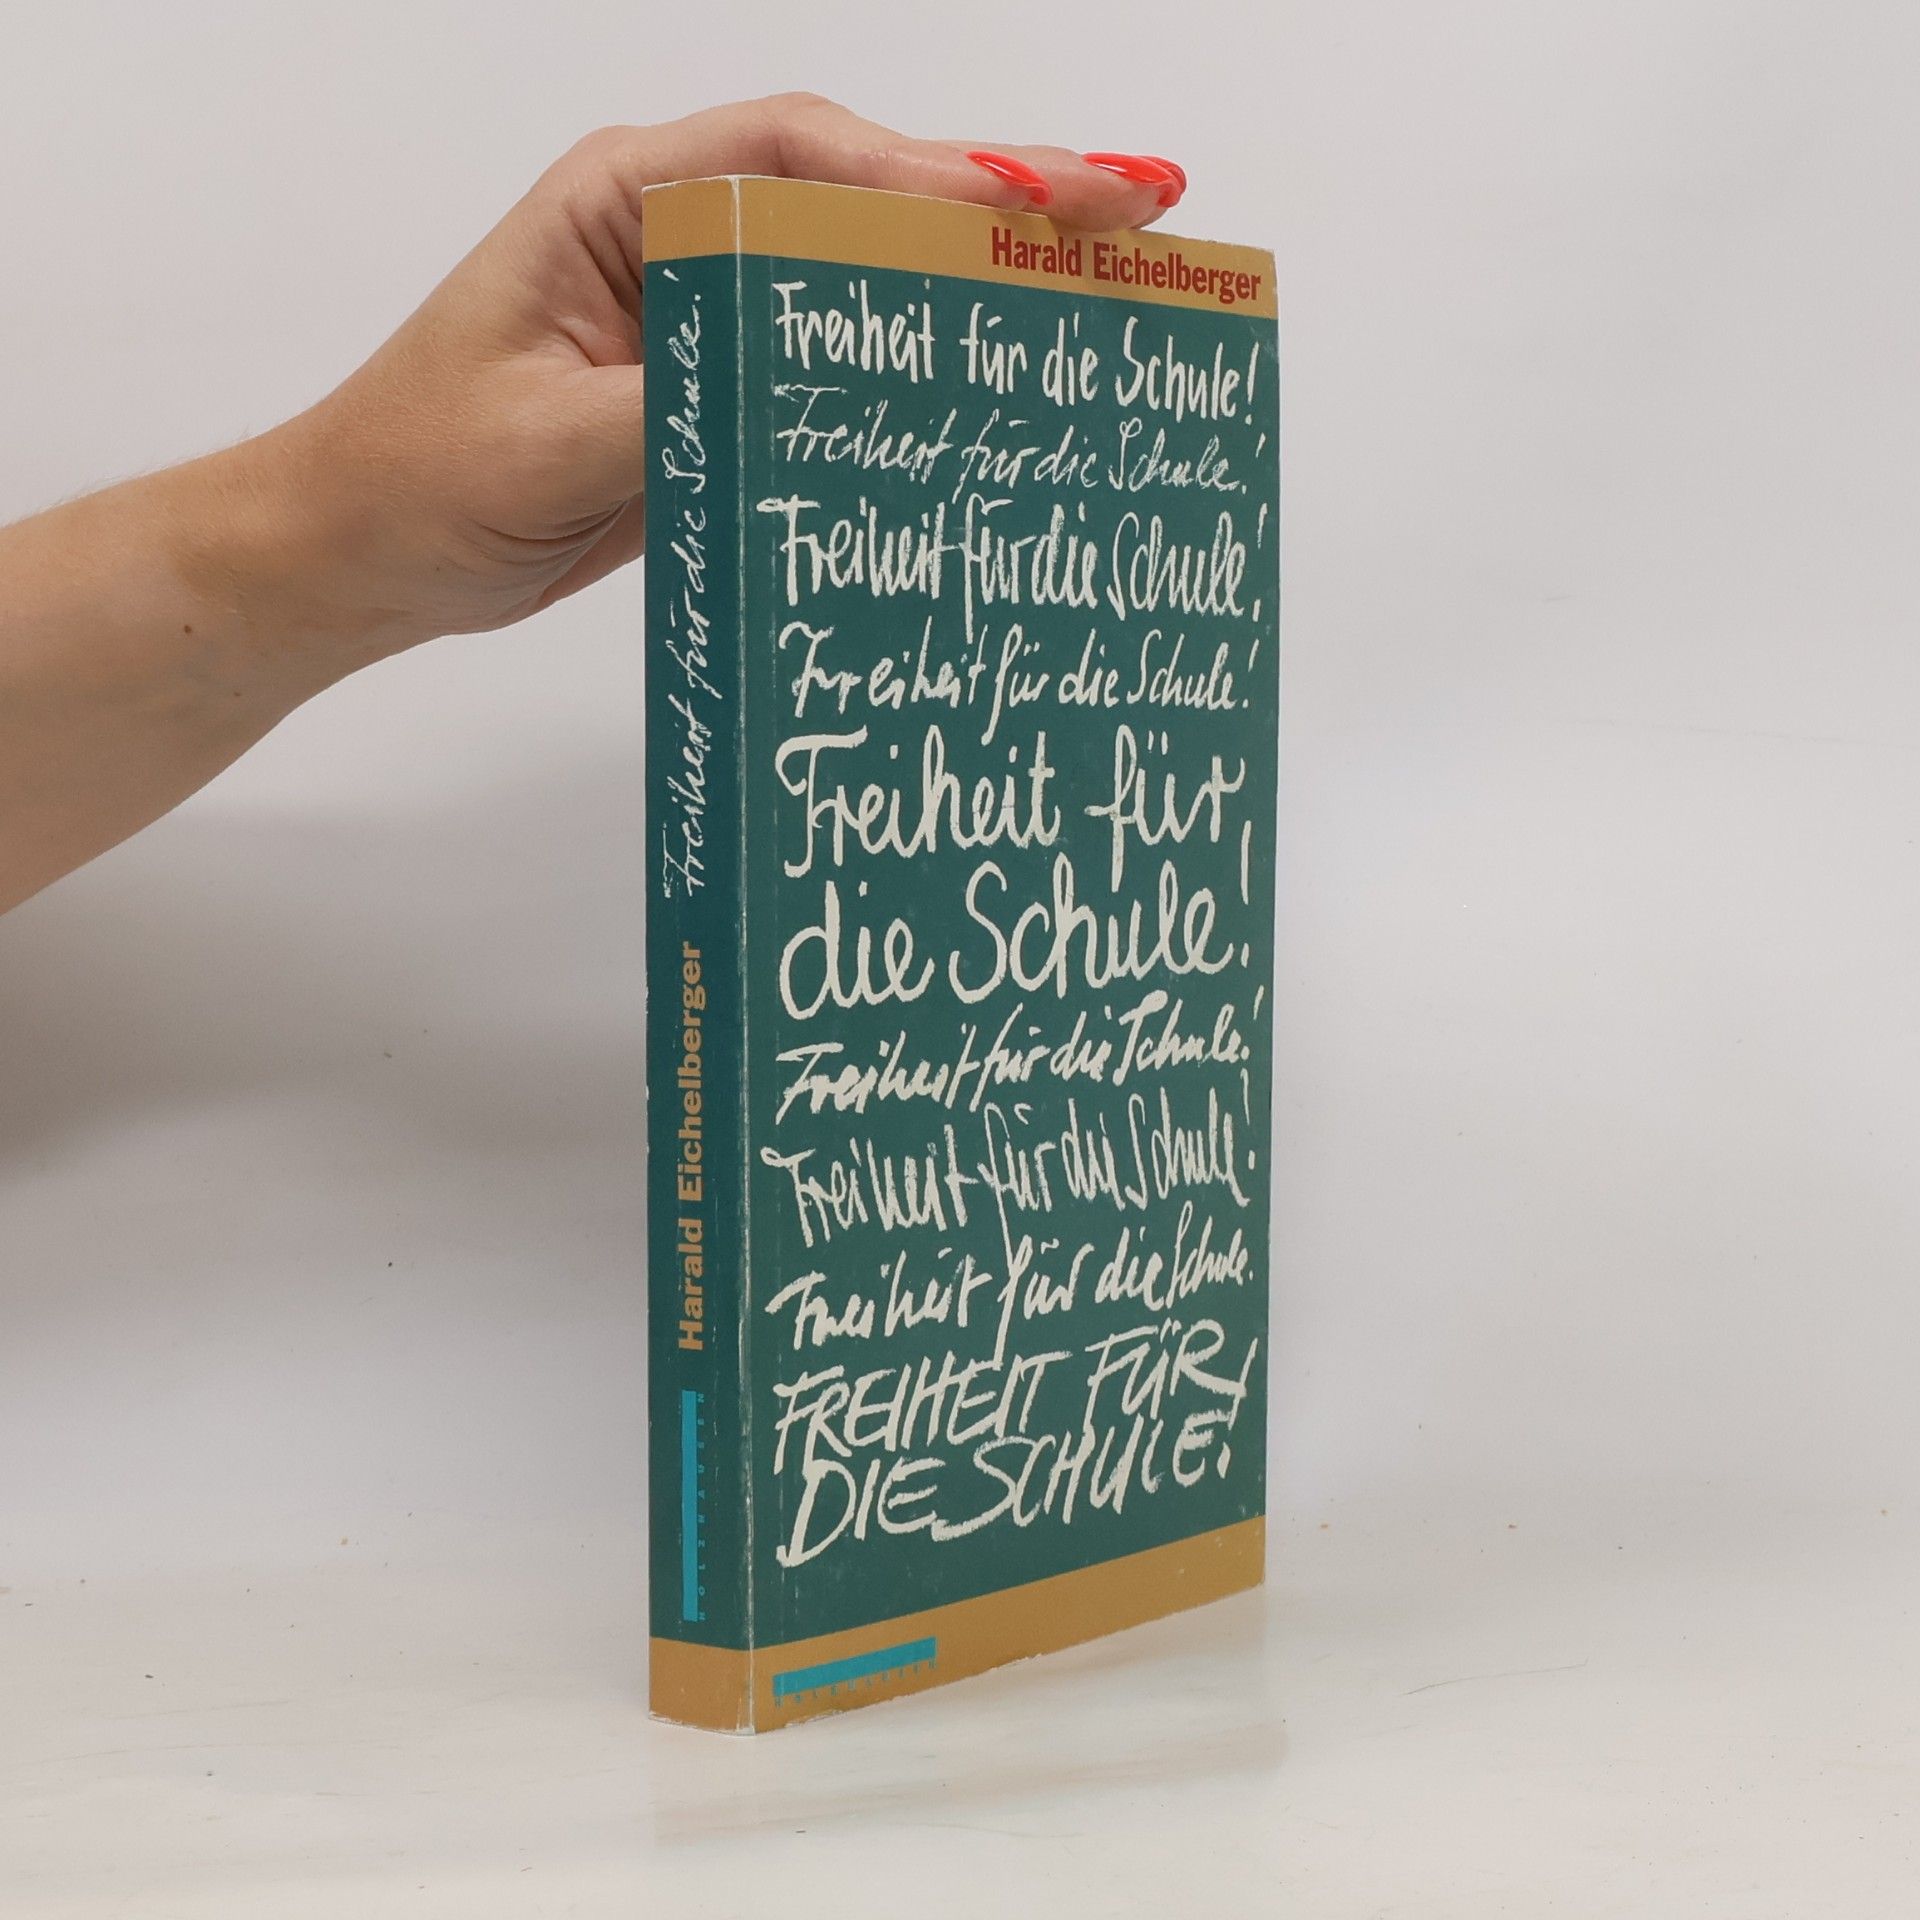 Harald Eichelberger
Freiheit für die Schule!
Freiheit für die Schule!
Freiheit für die Schule!
Freiheit für die Schule!
Freiheit für
die Schule!
Freiheit für die Schule!
Freiheit für die Schule!
Freiheit für die Schule.
FREIHEIT FÜR
DIE SCHULE!
HOLZHAUSEN
Harald Eichelberger Freiheit für die Schule!
HOLZHAUSEN